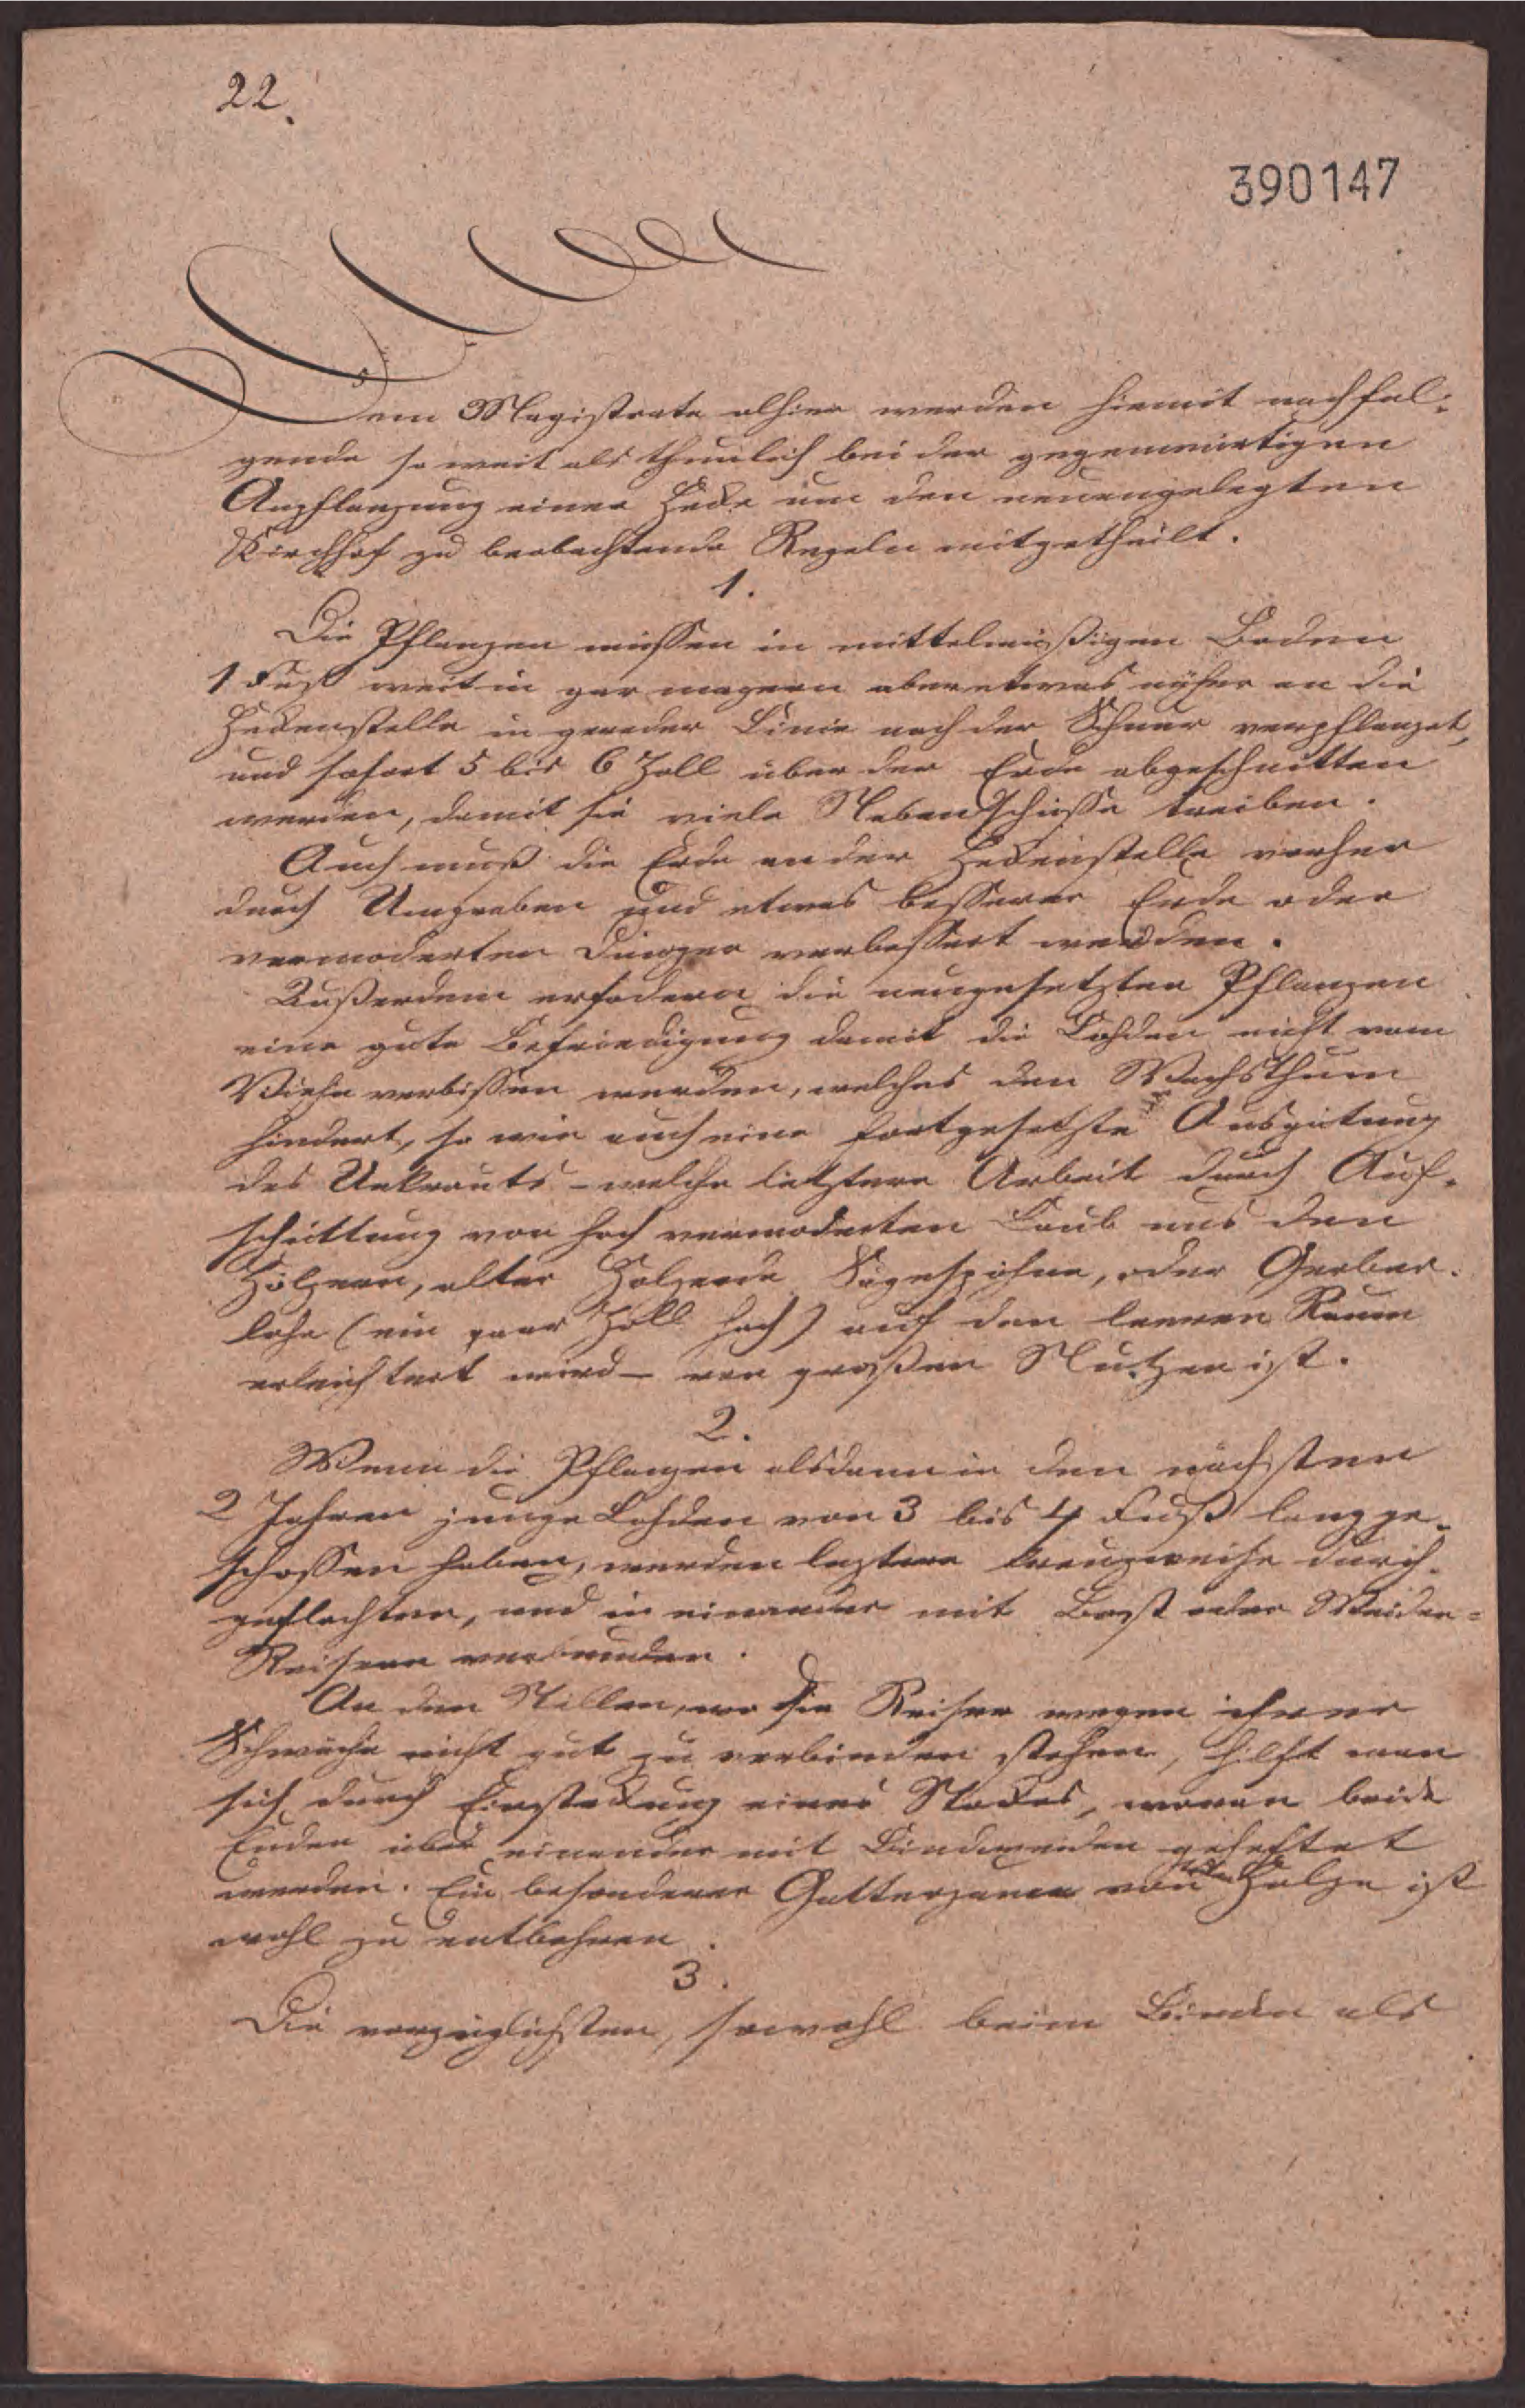 22.
390147
Dem Magistrate alhier werden hiemit nachfol-
gende so weit als thunlich bei der gegenwärtigen
Anpflanzung einer Hecke um den neuangelegten
Kirchhof zu beobachtende Regeln mitgetheilt.
1.
Die Pflanzen müssen in mittelmäßigen Boden
1 Fuß weit in gar magern aber etwas näher an die
Heckenstelle in gerader Linie nach der Schnur verpflanzt,
und sofort 5 bis 6 Zoll über der Erde abgeschnitten
werden, damit sie viele Nebenschüsse treiben.
Auch muß die Erde an der Heckenstelle vorher
durch Umgraben und etwas besserer Erde oder
vermoderten Dünger verbessert werden.
Außerdem erfodern die neugesetzten Pflanzen
eine gute Befriedigung damit die Lohden nicht vom
Viehe verbissen werden, welches den Wachsthum
hindert, so wie auch eine fortgesetzte Ausgätung
des Unkrauts – welche letztere Arbeit durch Auf-
schüttung von hoch vermoderten Laub aus den
Hölzern, alter Holzerde Sägespöhne, oder Gerber-
lohe (ein paar Zoll hoch) auf den leeren Raum
erleichtert wird – von großen Nutzen ist.
2.
Wenn die Pflanzen alsdann in den nächsten
2 Jahren junge Lohden von 3 bis 4 Fuß lang ge-
schossen haben, werden leztere kreuzweise durch-
geflochten, und in einander mit Bast oder Weiden-
Reisern verbunden.
An den Stellen, wo die Reiser wegen ihrer
Schwäche nicht gut zu verbinden stehen, hilft man
sich durch Einsteckung eines Stockes, woran beide
Enden über einander mit Bindweiden geheftet
werden. Ein besonderer Gatterzaun von Holze ist
wohl zu entbehren.
3.
Die vorzüglichsten, sowohl beim Binden als